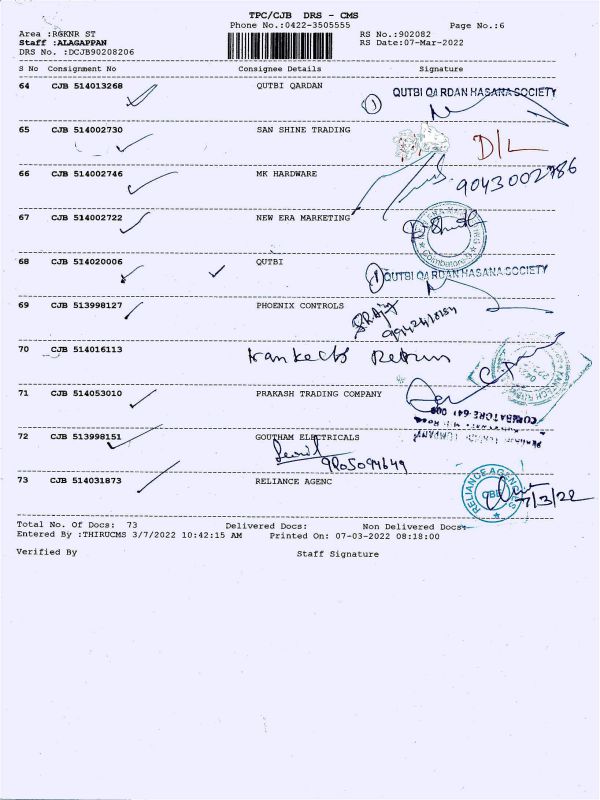 TPC/CJB DRS - CMS
Phone No.:0422-3505555 Page No.:6
Area :RGKNR ST RS No.:902082
Staff :ALAGAPPAN RS Date:07-Mar-2022
DRS No. :DCJB90208206
S No Consignment No Consignee Details Signature
64 CJB 514013268 QUTBI QARDAN
1 QUTBI QARDAN HASANA SOCIETY
65 CJB 514002730 SAN SHINE TRADING
D/L
66 CJB 514002746 MK HARDWARE
9043002786
67 CJB 514002722 NEW ERA MARKETING
68 CJB 514020006 QUTBI
1 QUTBI QARDAN HASANA SOCIETY
69 CJB 513998127 PHOENIX CONTROLS
70 CJB 514016113
71 CJB 514053010 PRAKASH TRADING COMPANY
72 CJB 513998151 GOUTHAM ELECTRICALS
73 CJB 514031873 RELIANCE AGENC
RELIANCE AGENCIES
CBE
7/3/22
Total No. Of Docs: 73 Delivered Docs: Non Delivered Docs:
Entered By :THIRUCMS 3/7/2022 10:42:15 AM Printed On: 07-03-2022 08:18:00
Verified By Staff Signature